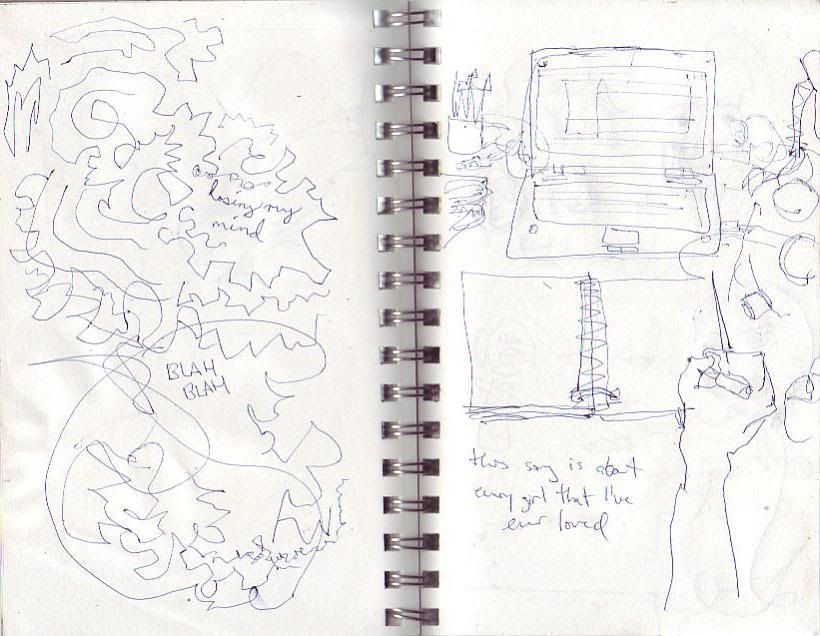 losing my
mind
BLAH
BLAH
this song is about
every girl that I've
ever loved